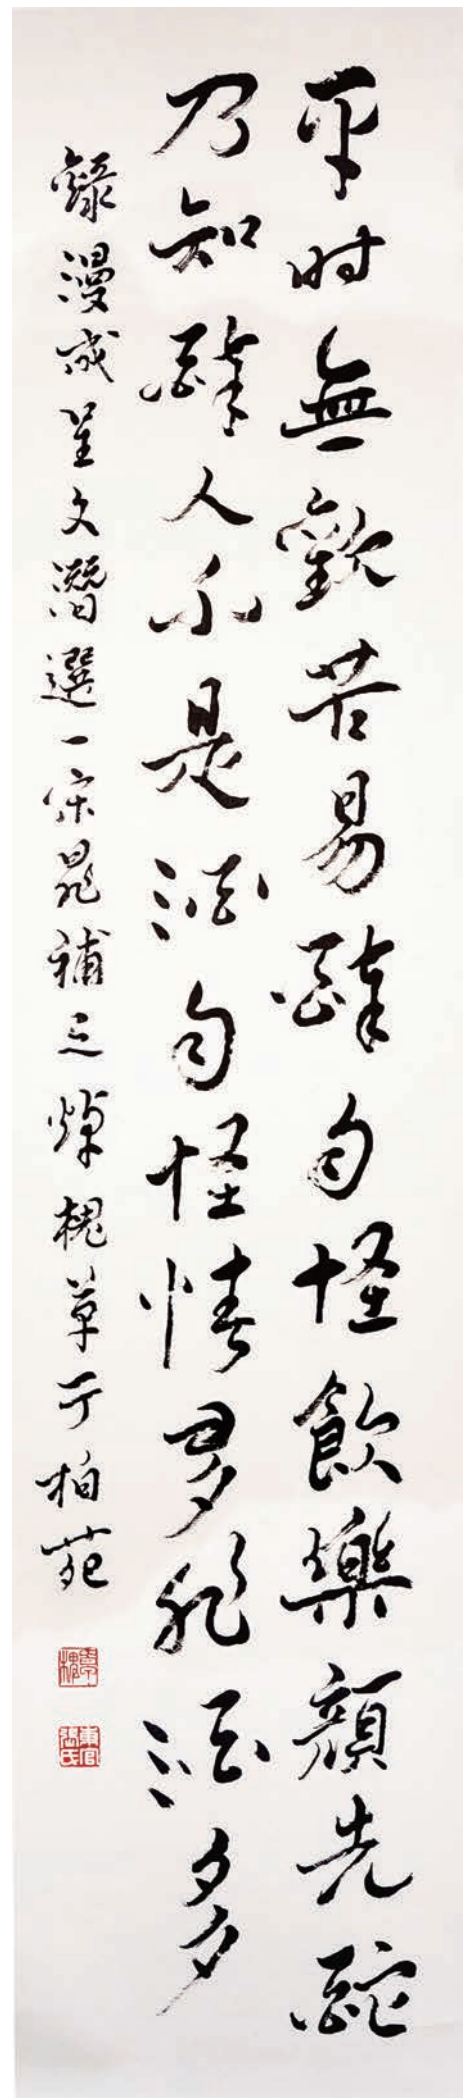 平时無歡苦易醉自怪飲樂顏先酡
乃知醉人不是酒自怪情多非酒多
錄漫成呈文潛選一宋晁補之焯槐草于柏苑
東官張氏